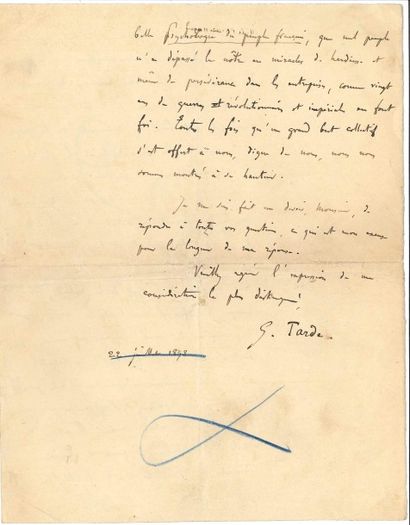 belle psychologie du peuple français, que nul peuple
n'a dépassé le nôtre en miracles de hardiesse et
même de persévérance dans les entreprises, comme vingt
ans de guerres révolutionnaires et impériales en font
foi. Toutes les fois qu'un grand but collectif
s'est offert à nous, digne de nous, nous nous
sommes montrés à sa hauteur.
Je me suis fait un devoir, Monsieur, de
répondre à toutes vos questions, ce qui est mon excuse
pour la longueur de ma réponse.
Veuillez agréer l'expression de ma
considération la plus distinguée,
G. Tarde
22 juillet 1898